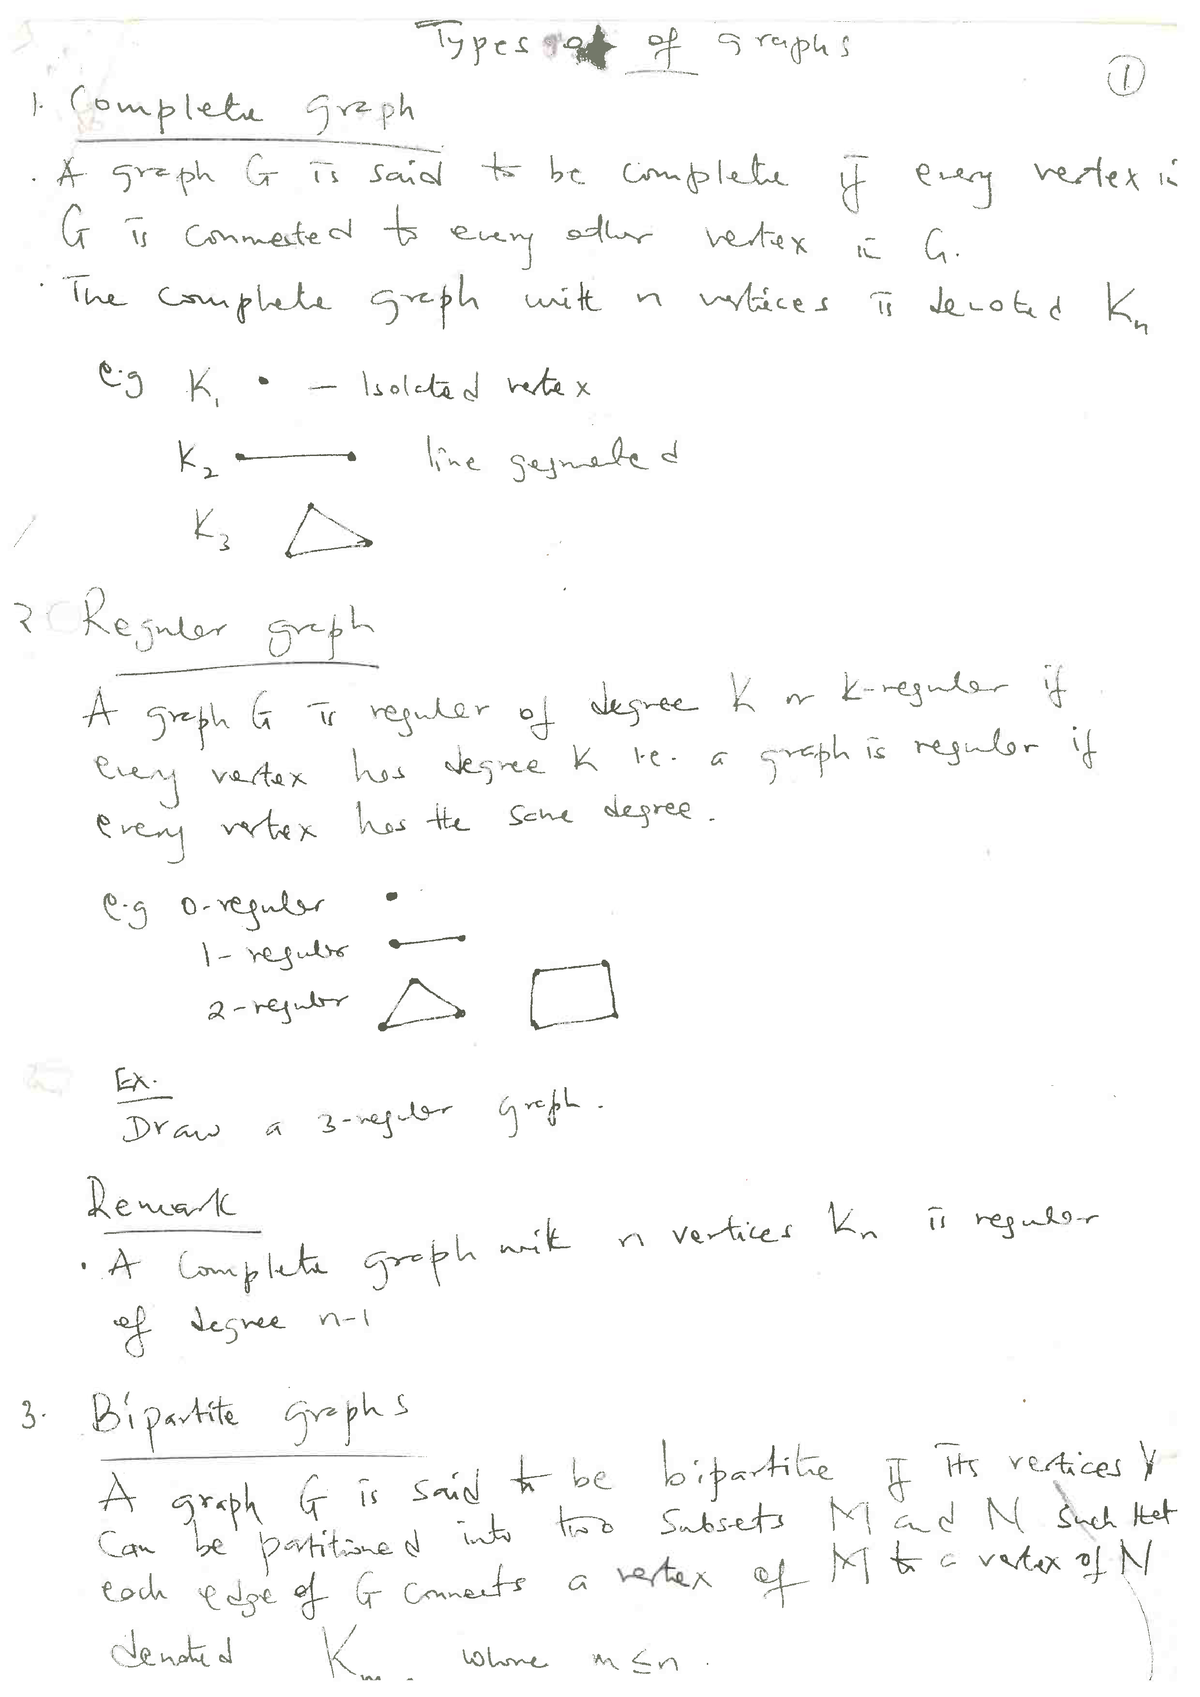 Types of of graphs
1
1. Complete graph
. A graph G is said to be complete if every vertex in
G is connected to every other vertex in G.
. The complete graph with n vertices is denoted Kn
e.g K1 • – Isolated vertex
K2 line
K3
2 Regular graph
A graph G is regular of degree K or K-regular if
every vertex has degree K i.e. a graph is regular if
every vertex has the same degree.
e.g 0-regular
1-regular
2-regular
Ex.
Draw a 3-regular graph.
Remark
. A Complete graph with n vertices Kn is regular
of degree n-1
3. Bipartite graphs
A graph G is said to be bipartite if its vertices V
Can be partitioned into two subsets M and N such that
each edge of G connects a vertex of M to a vertex of N
denoted Km where m≤n.